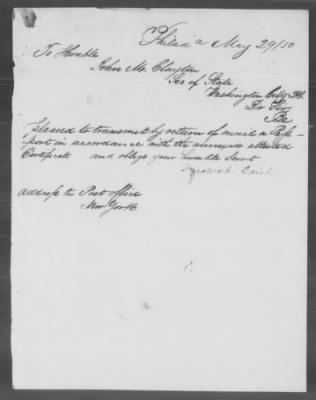 Philad a May 29/50
To Honble
John M. Clayton
Sec of State
Washington City
Sir
Please to transmit by return of mail a Pass-
port in accordance with the annexed
Certificate and oblige your humble Servt
address to Post office
New York